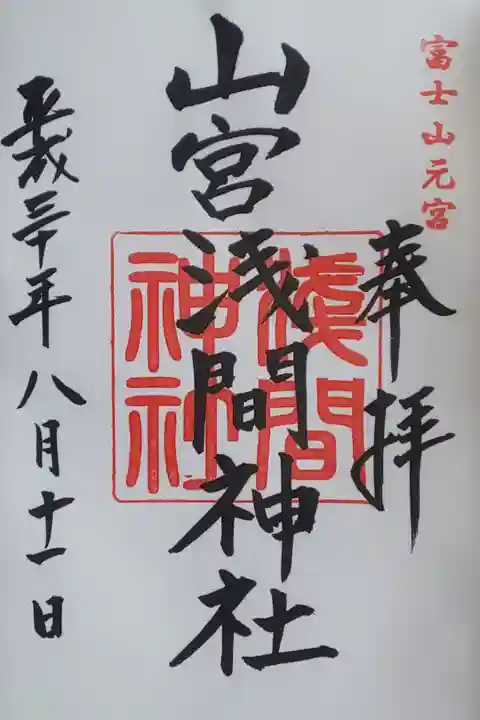 富士山元宮
奉拝
山宮浅間神社
淺間
神社
平成三十年八月十一日